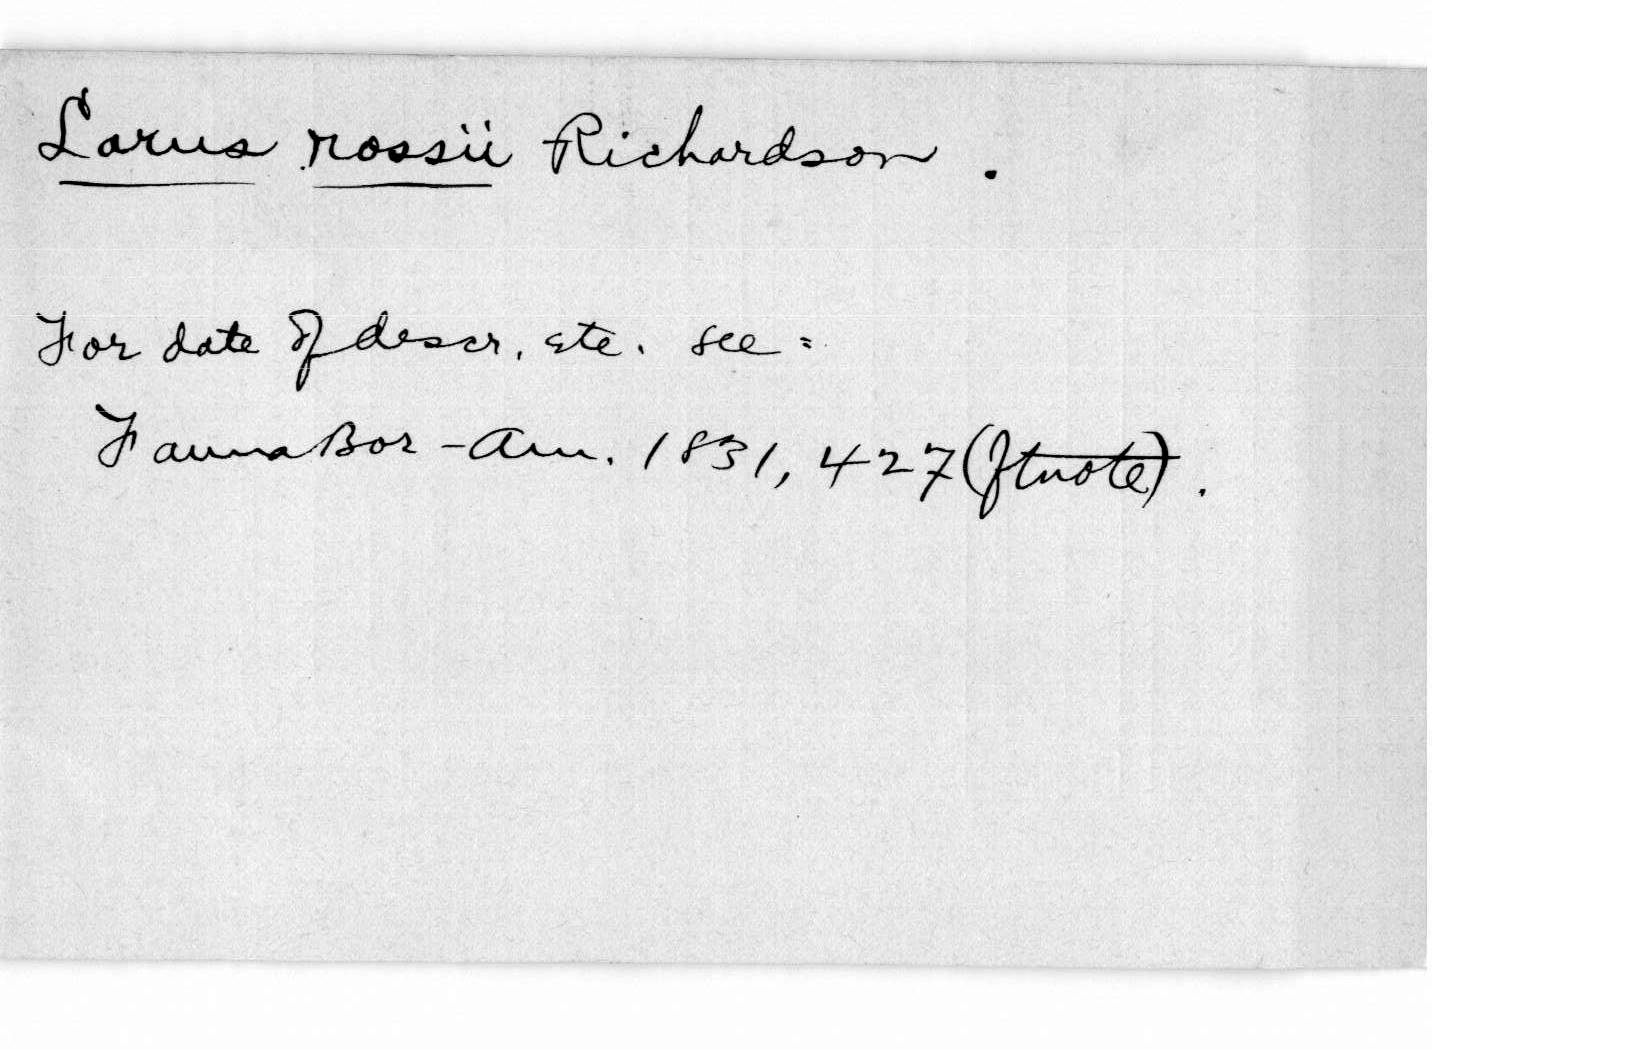 Larus rossii Richardson.
For date of descr. etc. see:
Fauna Bor-Am. 1831, 427 (ftnote).